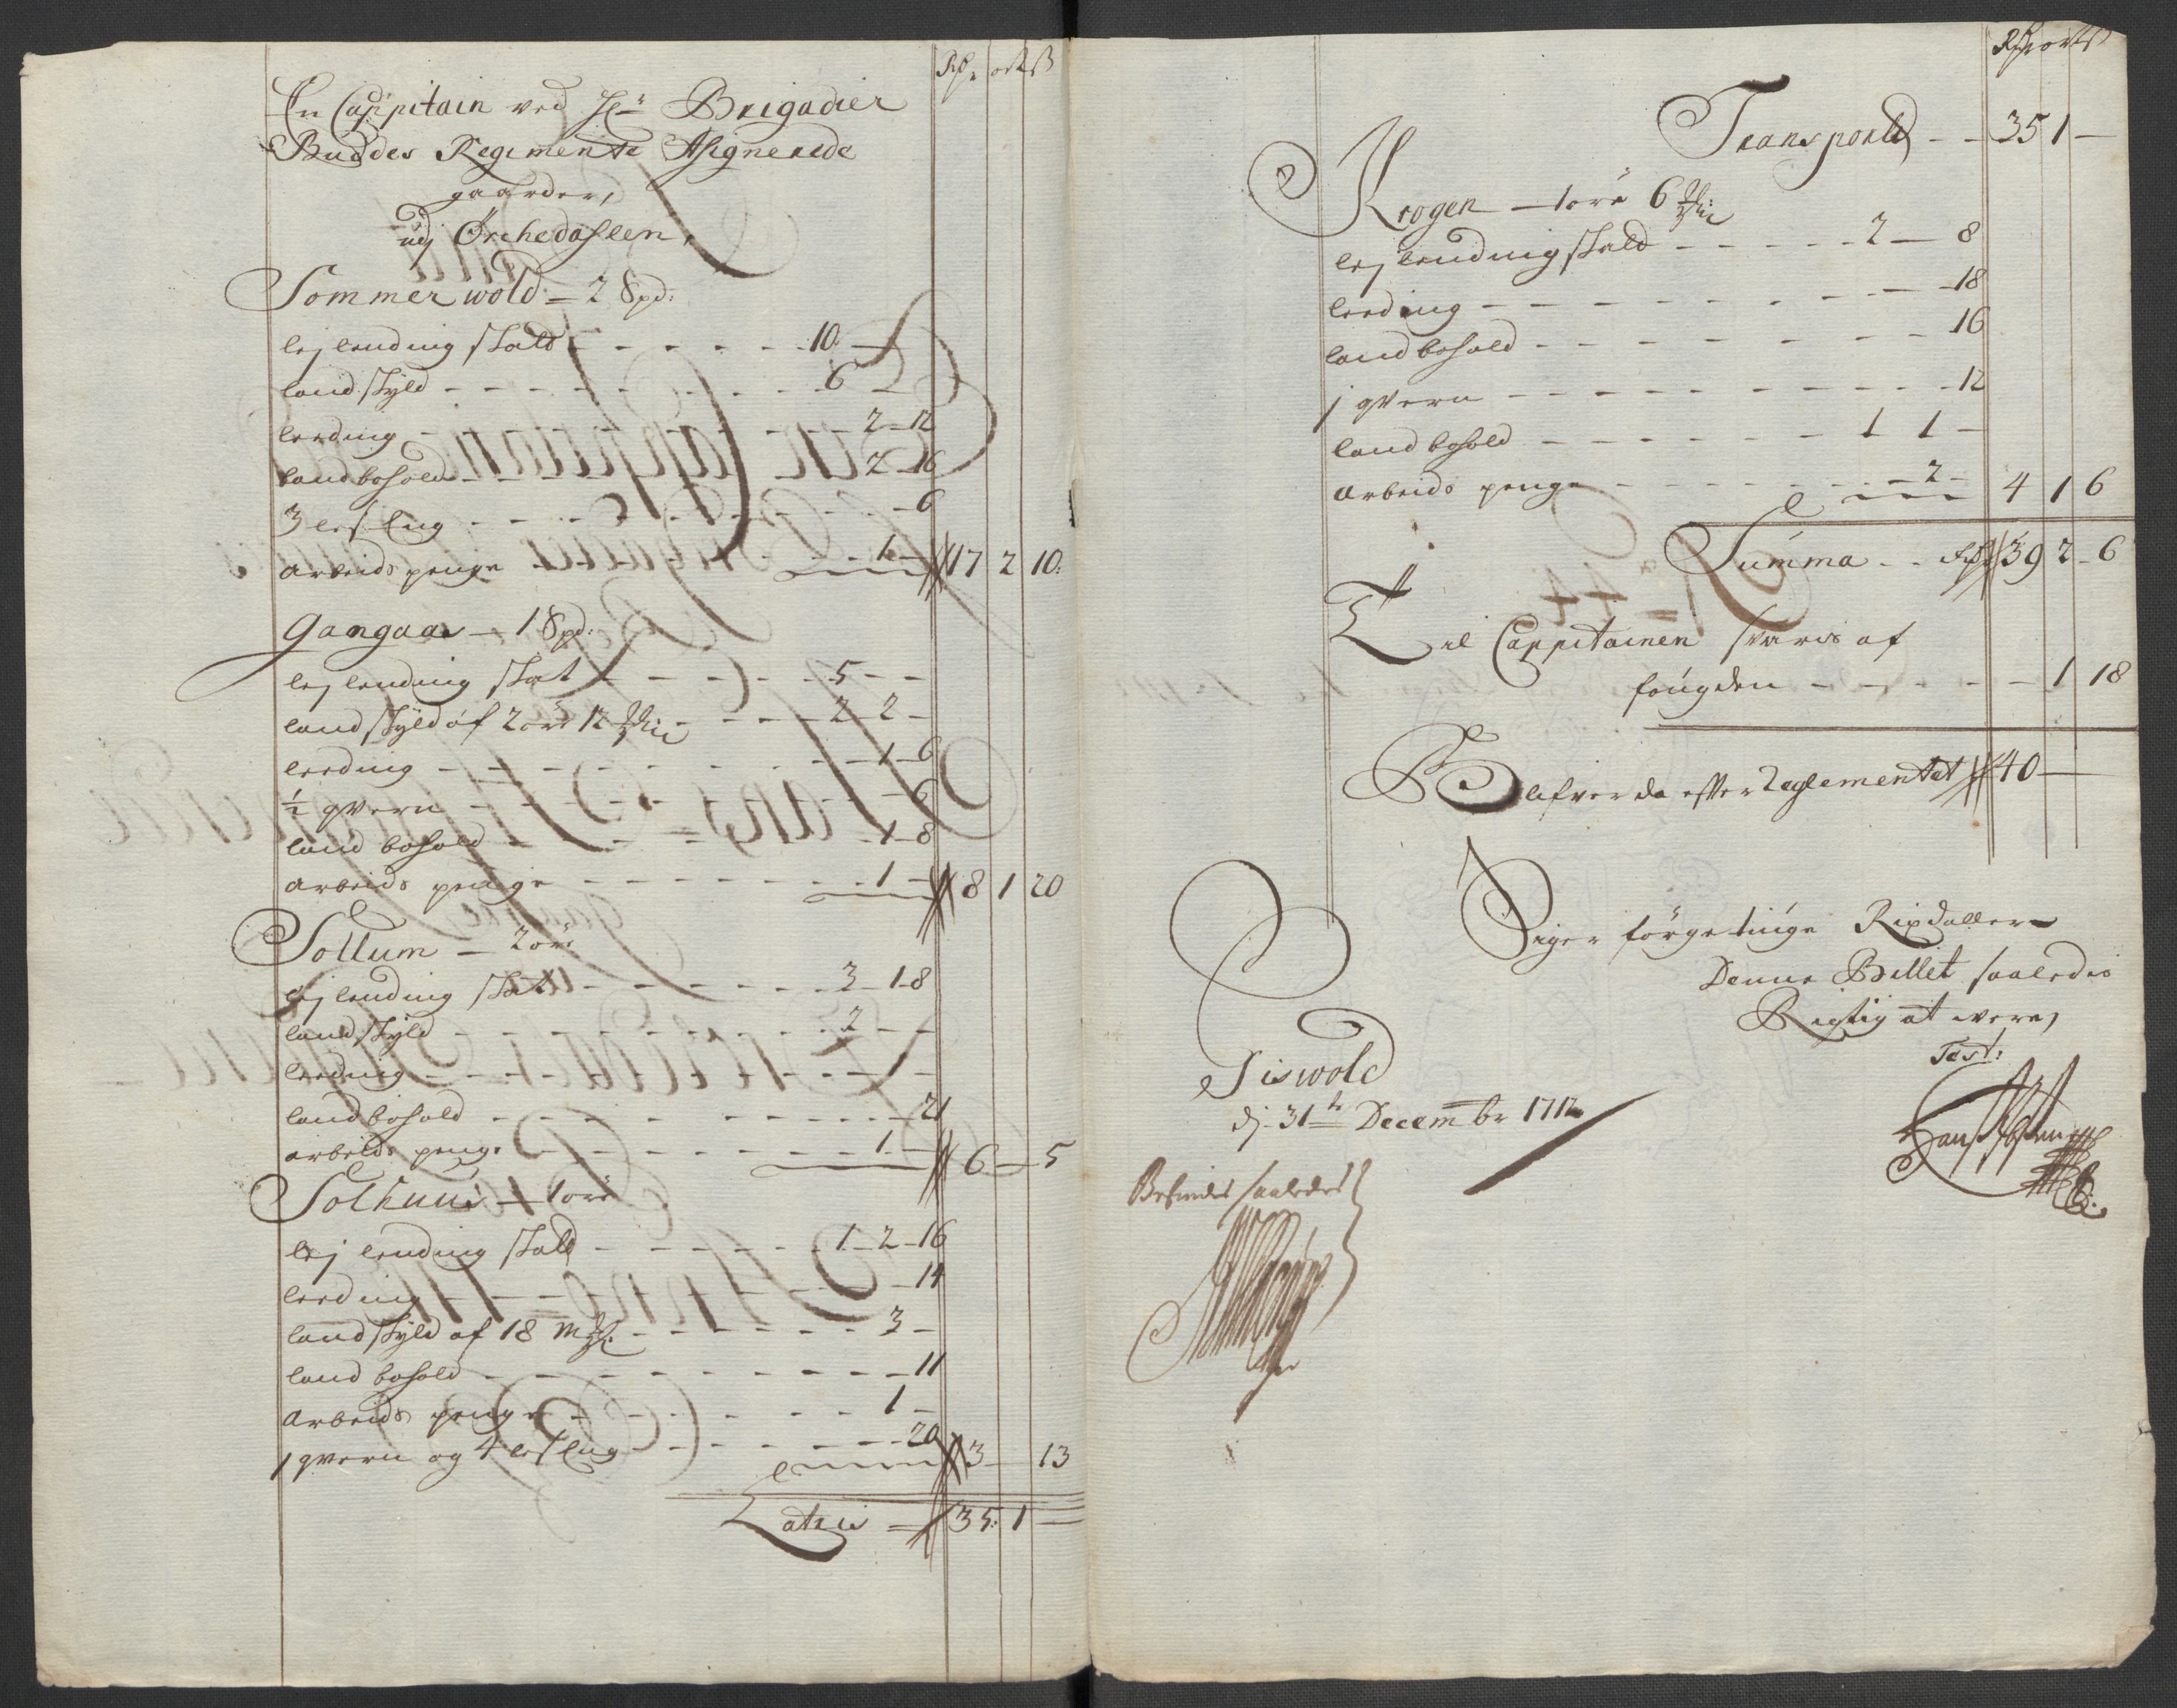 Rdr ort ß
En Cappitain ved Hr: Brigadier
Buddes Regimente Assignerede
gaarder,
udj Örchedahlen,
Sommerwold – 2 Spd:
lejlending skatt – 10 –
landskyld – 6 –
leeding – 2 – 12
landbohold – 2 – 16
3 les Eng – 6
arbeids penge – 1 – 17 2 10:
Gangaas – 1 Spd:
lejlending skat – 5 –
landskyld af 2 öre 12 – 2 2 –
leeding – 1 – 6
½ qvern – 6
land bohold – 1 – 8
arbeids penge – 1 – 8 1 20
Sollum – 2 öre
lejlending skat – 3 – 1 – 8
landskyld – 2 –
leeding – –
landbohold – 21
arbeids penge – 1 – 6 – 5
Solhuus – 1 öre
lejlending skatt – 1 – 2 – 16
leeding – 14
landskyld af 18 – 3 –
land bohold – 11
arbeids penge – 1 –
1 qvern og 4 les Eng – 20 3 – 13
Latris – 35: 1 –
Rdr ort ß
Transporterit – 35 1 –
Krogen – 1 öre 6
lejlending skatt – 2 – 8
leeding – 18
landbohold – 16
1 qvern – 12
landbohold – 1 1 –
arbeids penge – 2 – 4 1 6
Summa – Rdr 39 2 – 6
Til Cappitainen svaris af
fougden – 1 18
Blifver da efter Reglementet 40 –
Siger förgetiuge Rixdaller
Denne Billet saaledis
Rigtig at were,
Test:
Siswold
dj 31te Decembr 1712
Befindes saaledes